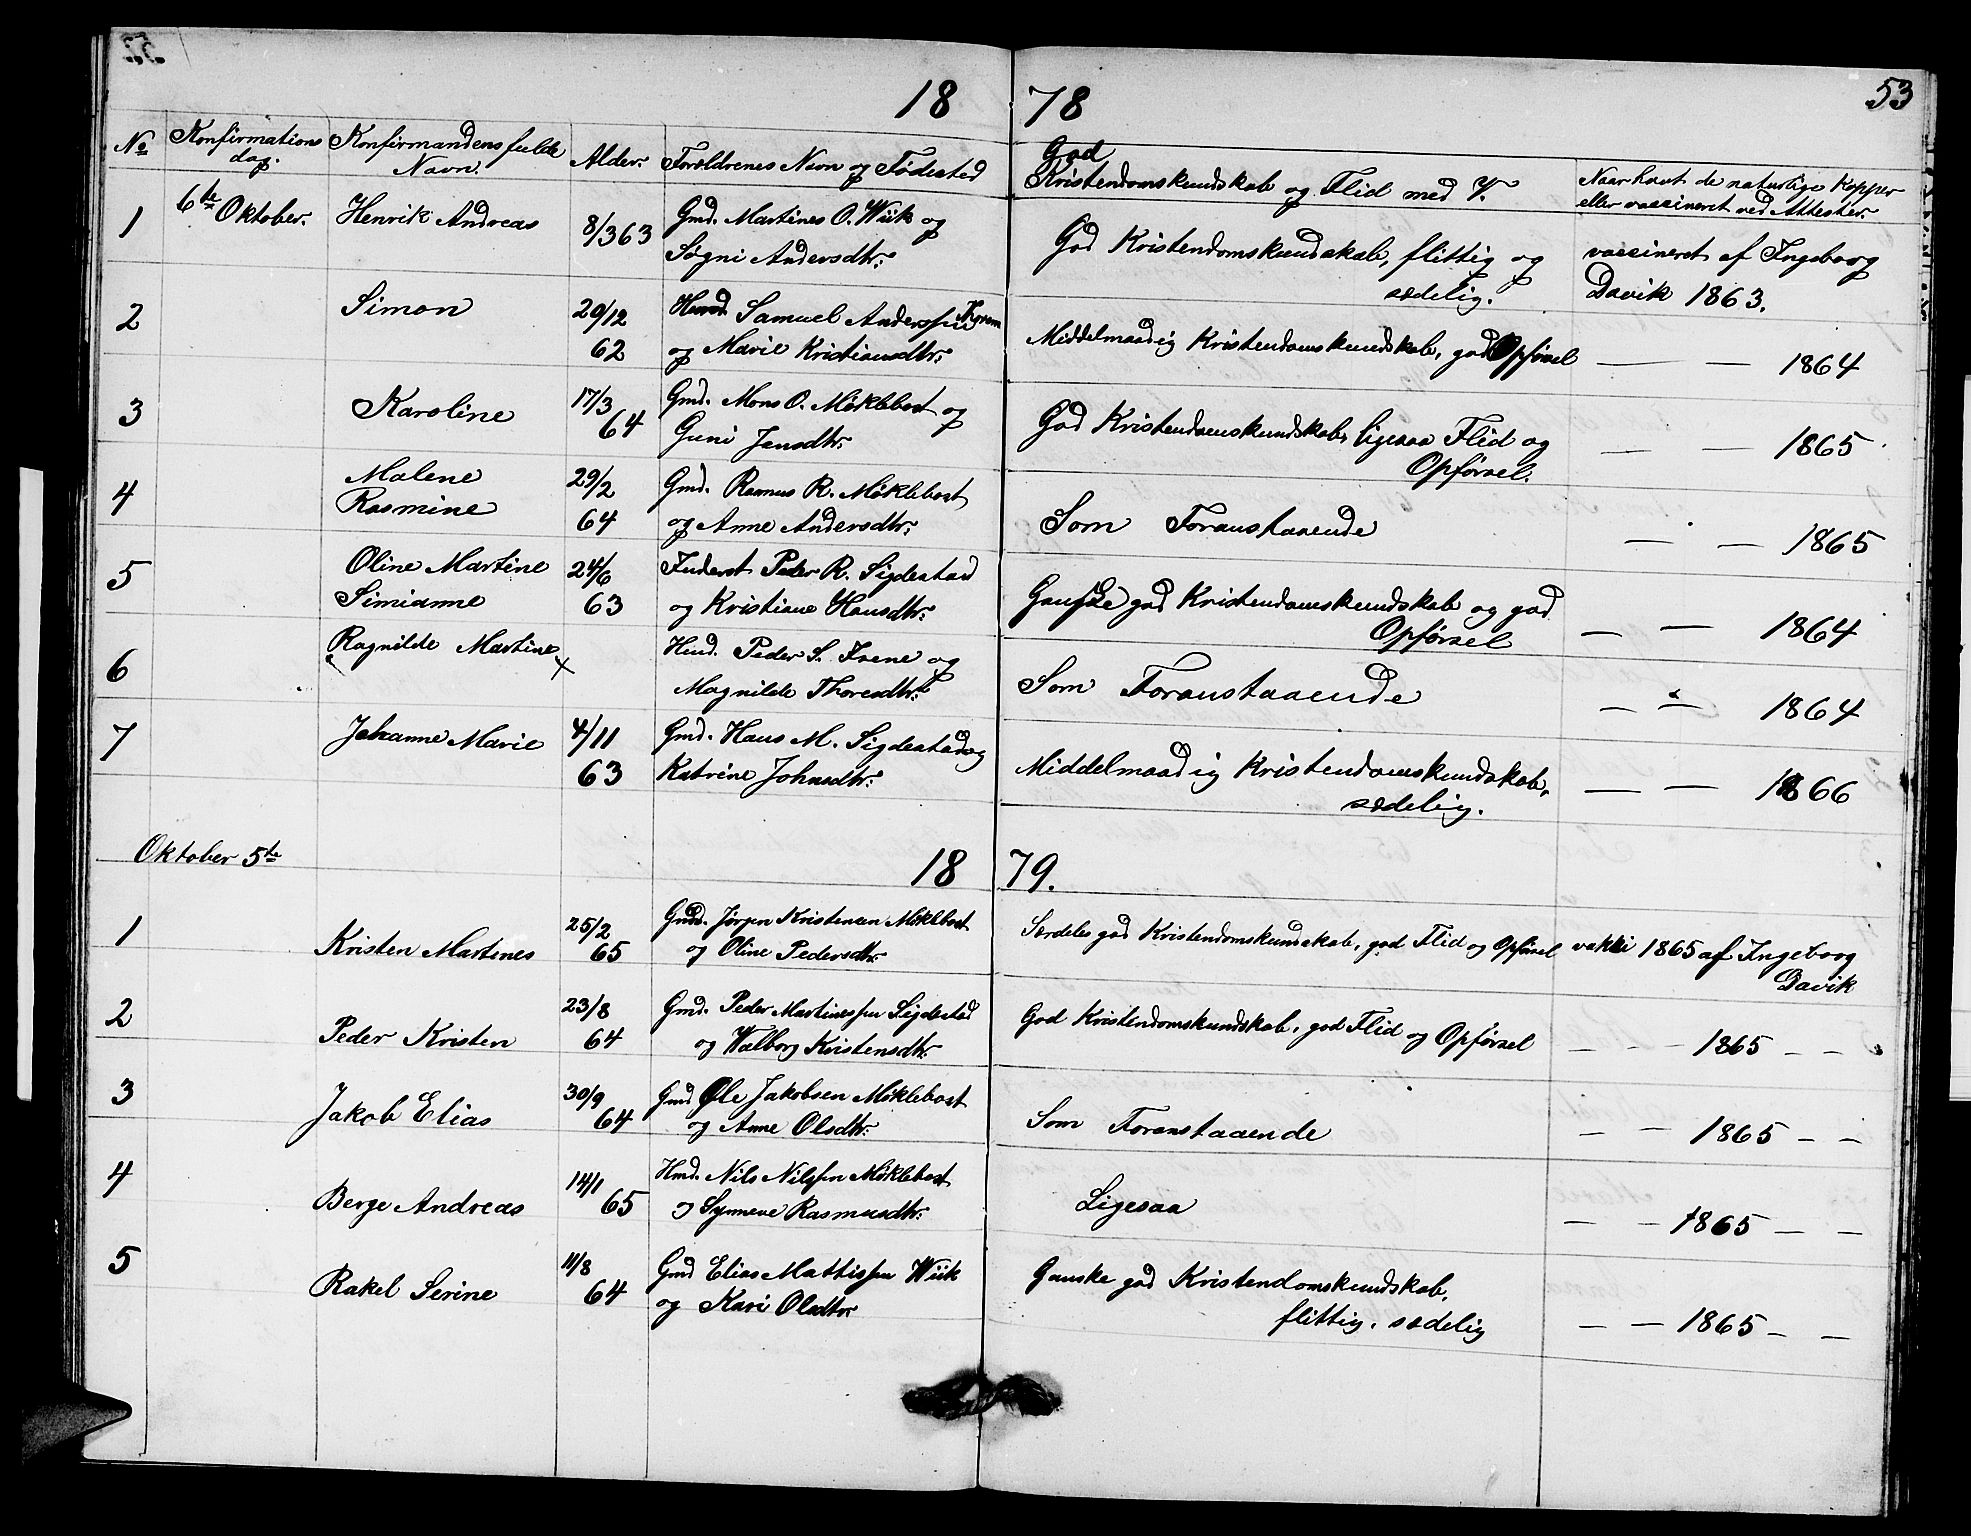 53
18 78
No Konfirmations dag. Konfirmandens fulde Navn. Alder. Forældrenes Navn og Fødested God Kristendomskundskab og Flid med V. Naar havt de naturlige Kopper eller vaccineret ved Attester.
1 6te Oktober. Henrik Andreas 8/3 63 Gmd. Martines O. Wiik og God Kristendomskundskab, flittig og vaccineret af Ingeborg
Søgni Andersdtr: sædelig. Davik 1863.
2 Simon 29/12 Huusd. Samuel Anderssen
62 og Marie Kristiansdtr: Middelmaadig Kristendomskundskab, god Opførsel — — 1864
3 Karoline 17/3 Gmd. Mons O. Møklebost og God Kristendomskundskab, ligesaa Flid og
64 Guni Jensdtr. Opførsel. — — 1865
4 Malene 29/2 Gmd. Rasmus R. Møklebost
Rasmine 64 og Anne Andersdtr: Som Foranstaaende — — 1865
5 Oline Martine 24/6 Inderst Peder R. Sigdestad Ganske god Kristendomskundskab og god
Simianne 63 og Kristiane Hansdtr: Opførsel — — 1864
6 Ragnilde Martine × Husd. Peder S. Isene og
Magnilde Thoresdtr: Som Foranstaaende — — 1864
7 Johanne Marie 4/11 Gmd. Hans M. Sigdestad og Middelmaadig Kristendomskundskab,
63 Katrine Johnsdtr: sædelig. — — 1866
Oktober 5te 18 79.
1 Kristen Martines 25/2 Gmd. Jørgen Kristensen Møklebost Særdeles god Kristendomskundskab, god Flid og Opførsel vakki 1865 af Ingeborg
65 og Oline Pedersdtr. Davik
2 Peder Kristen 23/8 Gmd. Peder Martinessen Sigdestad God Kristendomskundskab, god Flid og Opførsel
64 og Walborg Kristensdtr. — — — 1865 — —
3 Jakob Elias 30/9 Gmd Ole Jakobsen Møklebost
64 og Anne Olsdtr: Som Foranstaaende — — 1865 — —
4 Berge Andreas 14/1 Hmd. Nils Nilssen Møklebost
65 og Synneve Rasmusdtr: Ligesaa — — 1865 — —
5 Rakel Serine 11/8 Gmd Elias Mattissen Wiik Ganske god Kristendomskundskab,
64 og Kari Olsdtr. flittig, sædelig — — 1865 — —